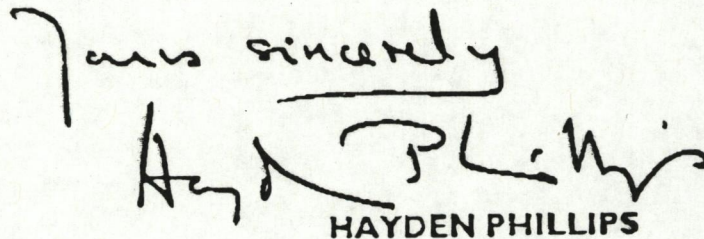 Yours sincerely
Hayden Phillips
HAYDEN PHILLIPS